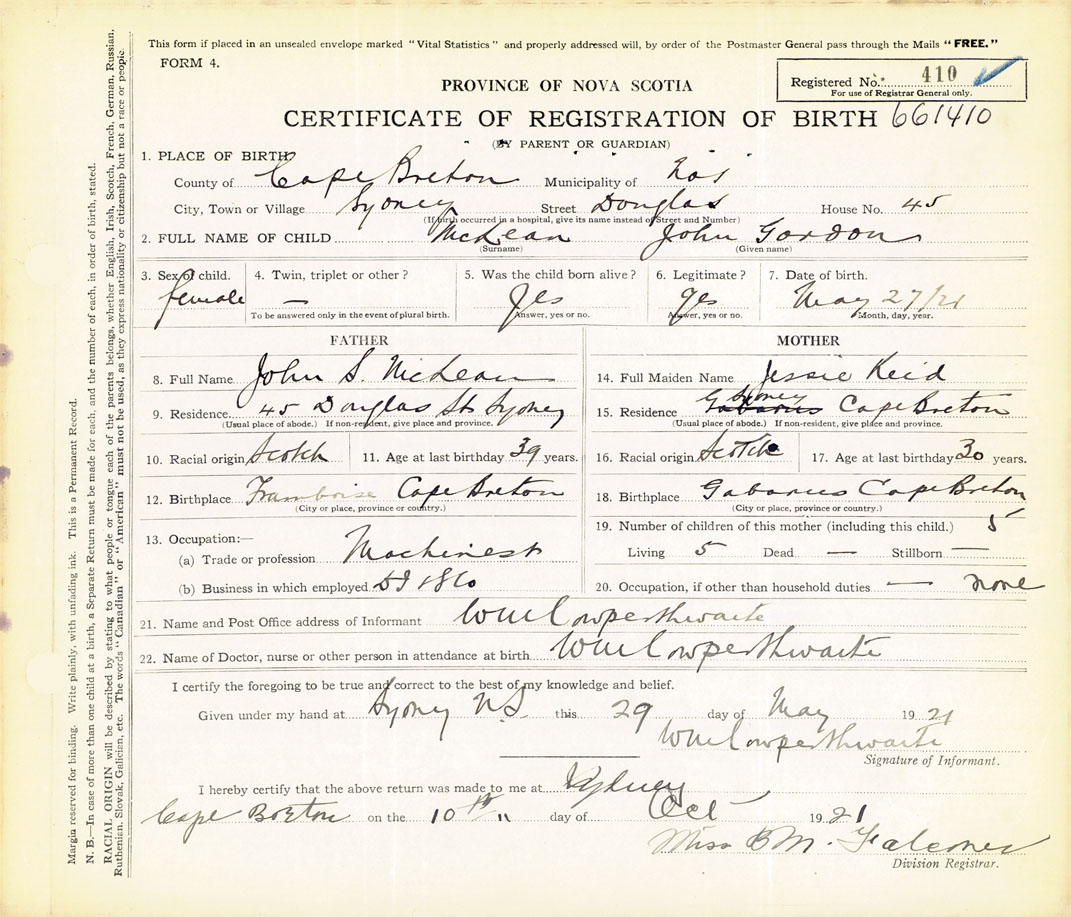 This form if placed in an unsealed envelope marked "Vital Statistics" and properly addressed will, by order of the Postmaster General pass through the Mails "FREE."
FORM 4.
Registered No. 410
For use of Registrar General only.
PROVINCE OF NOVA SCOTIA
CERTIFICATE OF REGISTRATION OF BIRTH 661410
(BY PARENT OR GUARDIAN)
1. PLACE OF BIRTH
County of Cape Breton Municipality of
City, Town or Village Sydney Street Douglas House No. 45
(If birth occurred in a hospital, give its name instead of Street and Number)
2. FULL NAME OF CHILD McLean John Gordon
(Surname) (Given name)
3. Sex of child. 4. Twin, triplet or other? 5. Was the child born alive? 6. Legitimate? 7. Date of birth.
female — Yes yes May 27/21
To be answered only in the event of plural birth. Answer, yes or no. Answer, yes or no. Month, day, year.
FATHER
8. Full Name John S. McLean
9. Residence 45 Douglas St Sydney
(Usual place of abode.) If non-resident, give place and province.
10. Racial origin Scotch 11. Age at last birthday 39 years.
12. Birthplace Framboise Cape Breton
(City or place, province or country.)
13. Occupation:—
(a) Trade or profession Machinest
(b) Business in which employed
MOTHER
14. Full Maiden Name Jessie Reid
Sydney
15. Residence Gabarus Cape Breton
(Usual place of abode.) If non-resident, give place and province.
16. Racial origin Scotch 17. Age at last birthday 30 years.
18. Birthplace Gabarus Cape Breton
(City or place, province or country.)
19. Number of children of this mother (including this child.) 5
Living 5 Dead — Stillborn —
20. Occupation, if other than household duties — none
21. Name and Post Office address of Informant Wm Cowperthwaite
22. Name of Doctor, nurse or other person in attendance at birth Wm Cowperthwaite
I certify the foregoing to be true and correct to the best of my knowledge and belief.
Given under my hand at Sydney N.S. this 29 day of May 1921
Wm Cowperthwaite
Signature of Informant.
I hereby certify that the above return was made to me at Sydney
Cape Breton on the 10th day of Oct 1921
Miss B M. Falconer
Division Registrar.
Margin reserved for binding. Write plainly, with unfading ink. This is a Permanent Record.
N. B.—In case of more than one child at a birth, a Separate Return must be made for each, and the number of each, in order of birth, stated.
RACIAL ORIGIN will be described by stating to what people or tongue each of the parents belongs, whether English, Irish, Scotch, French, German, Russian,
Ruthenian, Slovak, Galician, etc. The words "Canadian" or "American" must not be used, as they express nationality or citizenship but not a race or people.